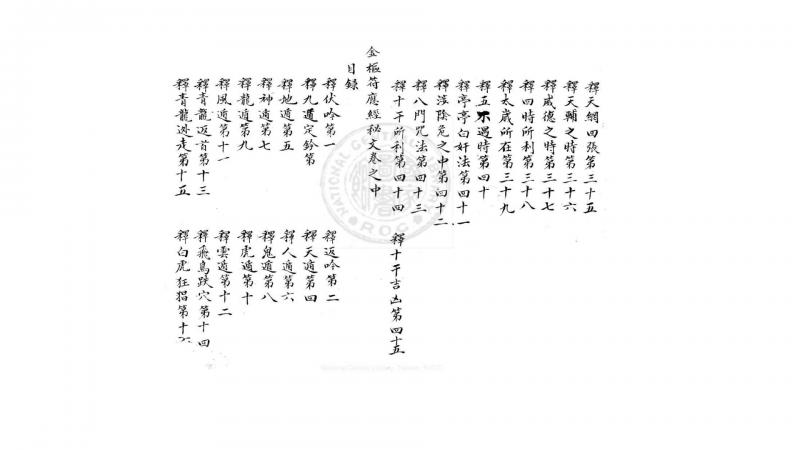 釋天網四張第三十五
釋天輔之時第三十六
釋威德之時第三十七
釋四時所利第三十八
釋太歲所在第三十九
釋五不遇時第四十
釋亭亭白奸法第四十一
釋涉險危之中第四十二
釋八門咒法第四十三
釋十干所利第四十四
釋十干吉凶第四十五
金樞符應經秘文卷之中
目錄
釋伏吟第一
釋返吟第二
釋九遁定鈐第
釋天遁第四
釋地遁第五
釋人遁第六
釋神遁第七
釋鬼遁第八
釋龍遁第九
釋虎遁第十
釋風遁第十一
釋雲遁第十二
釋青龍返首第十三
釋飛鳥跌穴第十四
釋青龍逃走第十五
釋白虎狂猖第十六
NATIONAL CENTRAL LIBRARY
R.O.C
National Central Library, Taiwan, R.O.C